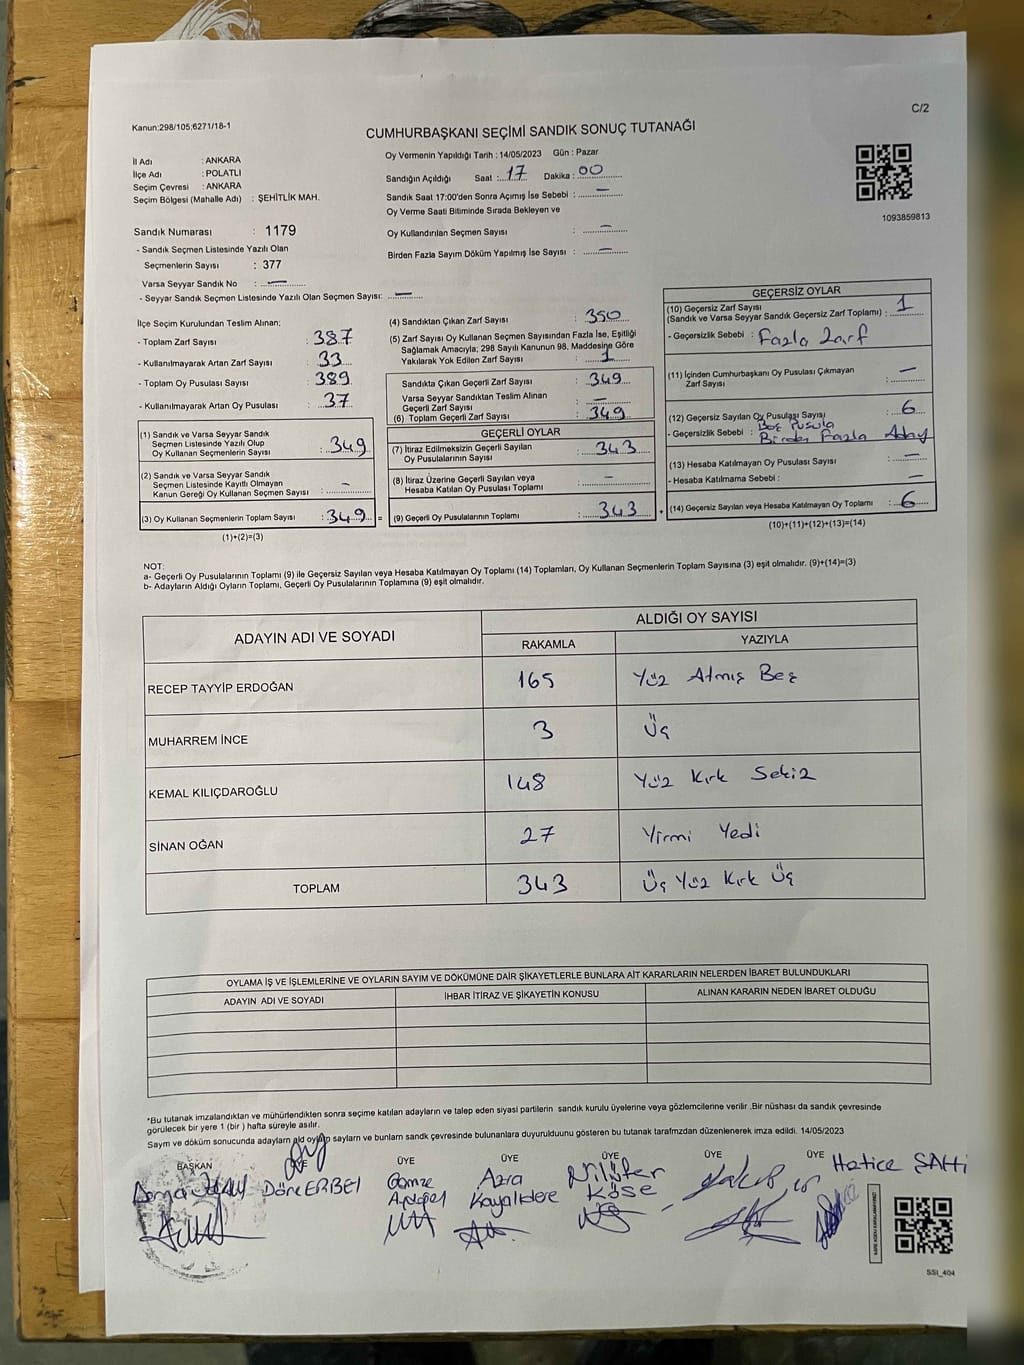 C/2
Kanun:298/105;6271/18-1
CUMHURBAŞKANI SEÇİMİ SANDIK SONUÇ TUTANAĞI
İl Adı : ANKARA
İlçe Adı : POLATLI
Seçim Çevresi : ANKARA
Seçim Bölgesi (Mahalle Adı) : ŞEHİTLİK MAH.
Oy Vermenin Yapıldığı Tarih : 14/05/2023 Gün : Pazar
Sandığın Açıldığı Saat : 17 Dakika : 00
Sandık Saat 17:00'den Sonra Açımış İse Sebebi : —
Oy Verme Saati Bitiminde Sırada Bekleyen ve
Oy Kullandırılan Seçmen Sayısı : —
Birden Fazla Sayım Döküm Yapılmış İse Sayısı : —
1093859813
Sandık Numarası : 1179
- Sandık Seçmen Listesinde Yazılı Olan
Seçmenlerin Sayısı : 377
Varsa Seyyar Sandık No : —
- Seyyar Sandık Seçmen Listesinde Yazılı Olan Seçmen Sayısı: —
İlçe Seçim Kurulundan Teslim Alınan;
- Toplam Zarf Sayısı : 387
- Kullanılmayarak Artan Zarf Sayısı : 33
- Toplam Oy Pusulası Sayısı : 389
- Kullanılmayarak Artan Oy Pusulası : 37
(1) Sandık ve Varsa Seyyar Sandık
Seçmen Listesinde Yazılı Olup
Oy Kullanan Seçmenlerin Sayısı : 349
(2) Sandık ve Varsa Seyyar Sandık
Seçmen Listesinde Kayıtlı Olmayan
Kanun Gereği Oy Kullanan Seçmen Sayısı : —
(3) Oy Kullanan Seçmenlerin Toplam Sayısı : 349 =
(1)+(2)=(3)
(4) Sandıktan Çıkan Zarf Sayısı : 350
(5) Zarf Sayısı Oy Kullanan Seçmen Sayısından Fazla İse, Eşitliği
Sağlamak Amacıyla; 298 Sayılı Kanunun 98. Maddesine Göre
Yakılarak Yok Edilen Zarf Sayısı : 1
Sandıkta Çıkan Geçerli Zarf Sayısı : 349
Varsa Seyyar Sandıktan Teslim Alınan
Geçerli Zarf Sayısı : —
(6) Toplam Geçerli Zarf Sayısı : 349
GEÇERLİ OYLAR
(7) İtiraz Edilmeksizin Geçerli Sayılan
Oy Pusulalarının Sayısı : 343
(8) İtiraz Üzerine Geçerli Sayılan veya
Hesaba Katılan Oy Pusulası Toplamı : —
(9) Geçerli Oy Pusulalarının Toplamı : 343 +
GEÇERSİZ OYLAR
(10) Geçersiz Zarf Sayısı
(Sandık ve Varsa Seyyar Sandık Geçersiz Zarf Toplamı) : 1
- Geçersizlik Sebebi : Fazla Zarf
(11) İçinden Cumhurbaşkanı Oy Pusulası Çıkmayan
Zarf Sayısı : —
(12) Geçersiz Sayılan Oy Pusulası Sayısı : 6
Boş Pusula
- Geçersizlik Sebebi : Birden Fazla Aday
(13) Hesaba Katılmayan Oy Pusulası Sayısı : —
- Hesaba Katılmama Sebebi : —
(14) Geçersiz Sayılan veya Hesaba Katılmayan Oy Toplamı : 6
(10)+(11)+(12)+(13)=(14)
NOT:
a- Geçerli Oy Pusulalarının Toplamı (9) ile Geçersiz Sayılan veya Hesaba Katılmayan Oy Toplamı (14) Toplamları, Oy Kullanan Seçmenlerin Toplam Sayısına (3) eşit olmalıdır. (9)+(14)=(3)
b- Adayların Aldığı Oyların Toplamı, Geçerli Oy Pusulalarının Toplamına (9) eşit olmalıdır.
ADAYIN ADI VE SOYADI
ALDIĞI OY SAYISI
RAKAMLA YAZIYLA
RECEP TAYYİP ERDOĞAN 165 Yüz Atmış Beş
MUHARREM İNCE 3 Üç
KEMAL KILIÇDAROĞLU 148 Yüz Kırk Sekiz
SİNAN OĞAN 27 Yirmi Yedi
TOPLAM 343 Üç Yüz Kırk Üç
OYLAMA İŞ VE İŞLEMLERİNE VE OYLARIN SAYIM VE DÖKÜMÜNE DAİR ŞİKAYETLERLE BUNLARA AİT KARARLARIN NELERDEN İBARET BULUNDUKLARI
ADAYIN ADI VE SOYADI İHBAR İTİRAZ VE ŞİKAYETİN KONUSU ALINAN KARARIN NEDEN İBARET OLDUĞU
*Bu tutanak imzalandıktan ve mühürlendikten sonra seçime katılan adayların ve talep eden siyasi partilerin sandık kurulu üyelerine veya gözlemcilerine verilir .Bir nüshası da sandık çevresinde
görülecek bir yere 1 (bir ) hafta süreyle asılır.
Sayım ve döküm sonucunda adayların ald oyların sayların ve bunlarn sandk çevresinde bulunanlara duyurulduunu gösteren bu tutanak tarafmzdan düzenlenerek imza edildi. 14/05/2023
BAŞKAN ÜYE ÜYE ÜYE ÜYE ÜYE ÜYE
Döne ERBEL
Gamze
Azra
Kayalıdere
Nilüfer
Köse
Hatice
SSI_404